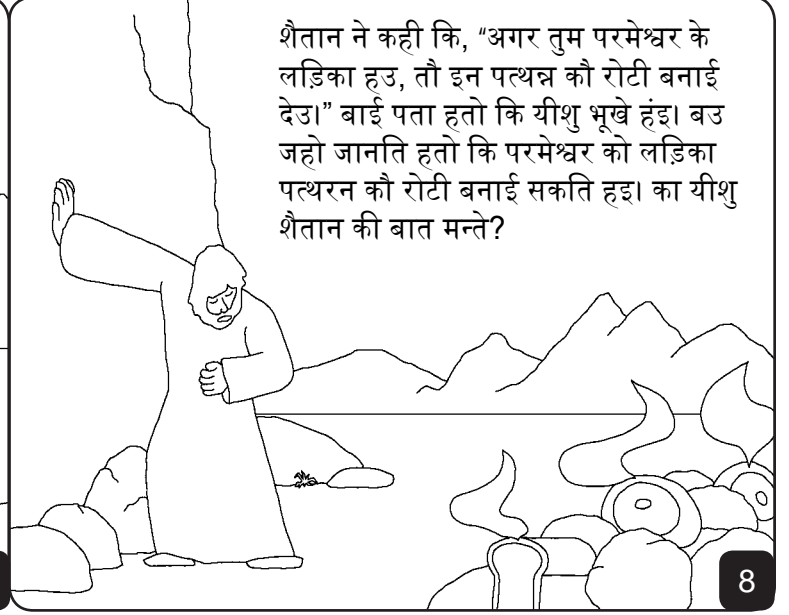 शैतान ने कही कि, “अगर तुम परमेश्वर के
लड़िका हउ, तौ इन पत्थन्न कौ रोटी बनाई
देउ।” बाई पता हतो कि यीशु भूखे हंइ। बउ
जहो जानति हतो कि परमेश्वर को लड़िका
पत्थरन कौ रोटी बनाई सकति हइ। का यीशु
शैतान की बात मन्ते?
8